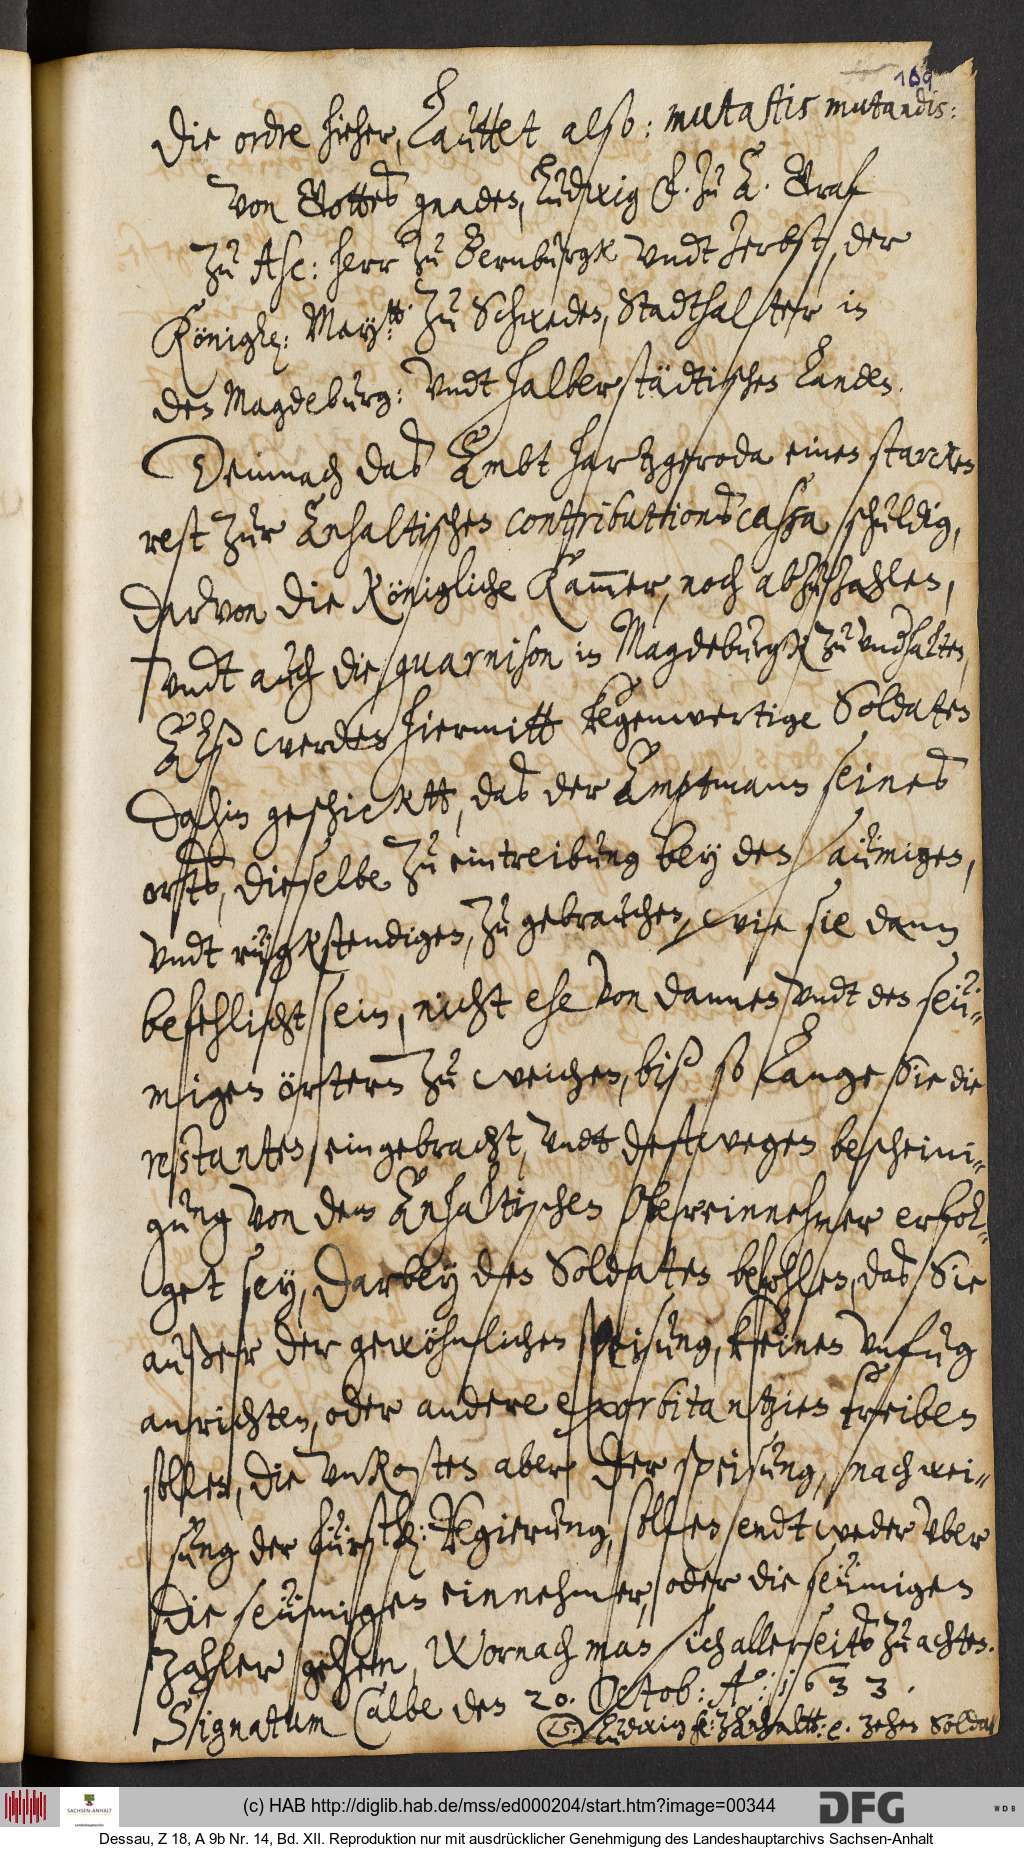 169
Die ordre hieher, Lauttet also: mutatis mutandis:
Von Gottes gnaden, Ludwig F. zu A. Graf
zu Asc: herr zu Bernburgk vndt Zerbst, der
Königl: Maytt: zu Schweden, Stadthalter in
den Magdeburg: vndt halberstädtischen Landen.
Demnach das Ambt hartzgeroda einen starcken
rest zur Anhaltischen contributtions cassa schuldig,
dardvon die Königliche Kammer, noch abzuzahlen,
vndt auch die guarnison in Magdeburgk zu vndthalten,
Alß werden hiermitt kegenwertige Soldaten
dahin geschicktt, das der Amptmann seines
orths, dieselbe zu eintreibung bey den säumigen,
vndt rügkstendigen, zu gebrauchen, wie sie dann
befehlicht sein, nicht ehe von dannen vndt den seu-
migen örtern zu weichen, biß so Lange Sie die
restanten eingebracht, vndt deßwegen bescheini-
gung von dem Anhaltischen Obereinnehmer erfol-
get sey, Darbey den Soldaten befohlen, das Sie
außer der gewöhnlichen speisung, keinen vnfug
anrichten, oder andere exorbitantzien treiben
sollen, die vnkosten aber der speisung, nachwei-
sung der fürstl: Regierung, sollen endtweder vber
die seumigen einnehmer, oder die seumigen
zahler gehen, Wornach man sich allerseits zu achten.
Signatum Calbe den 20. Octob: Ao: 1633.
(L S.) Ludwig f: z Anhaltt: e. zehen Soldat
(c) HAB http://diglib.hab.de/mss/ed000204/start.htm?image=00344
SACHSEN-ANHALT
DFG
WDB
Dessau, Z 18, A 9b Nr. 14, Bd. XII. Reproduktion nur mit ausdrücklicher Genehmigung des Landeshauptarchivs Sachsen-Anhalt